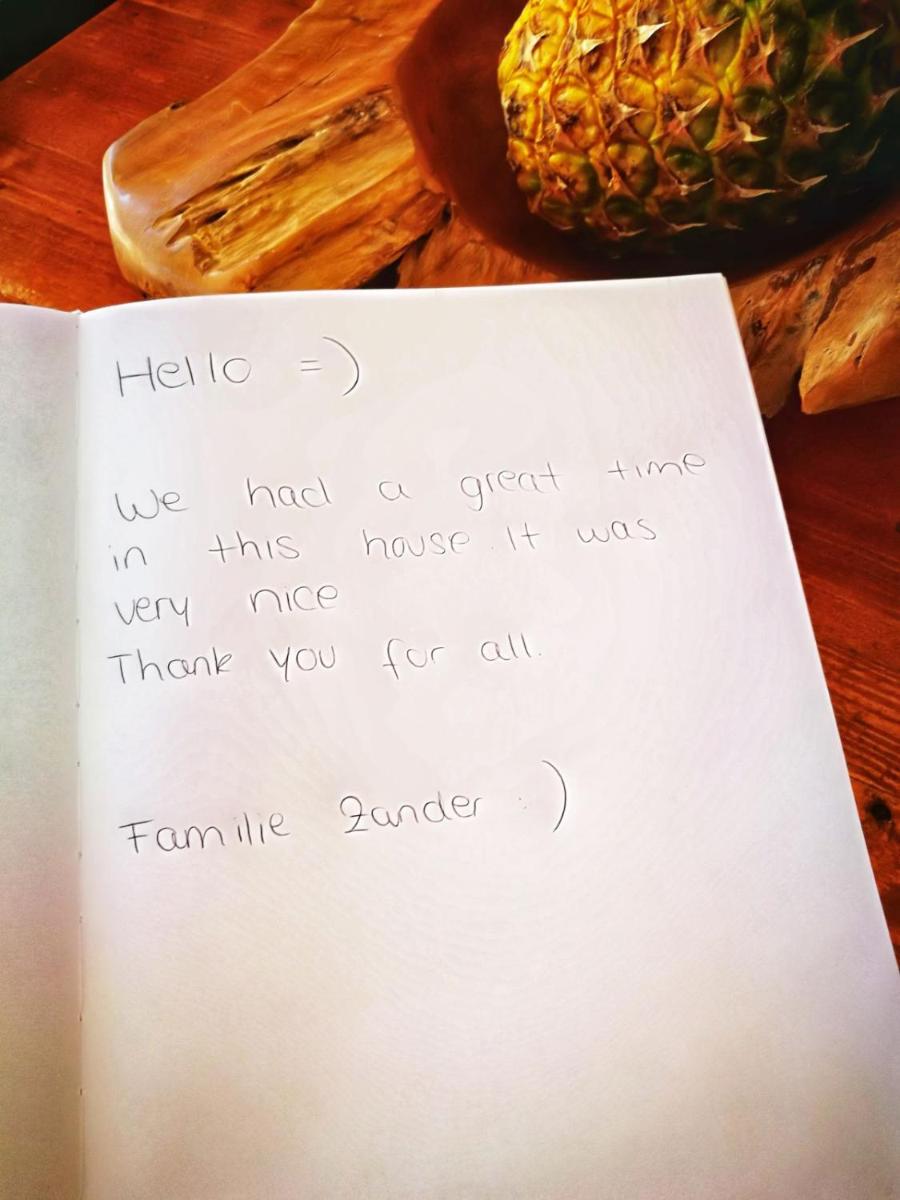 Hello =)
We had a great time
in this house. It was
very nice
Thank you for all.
Familie Zander :)